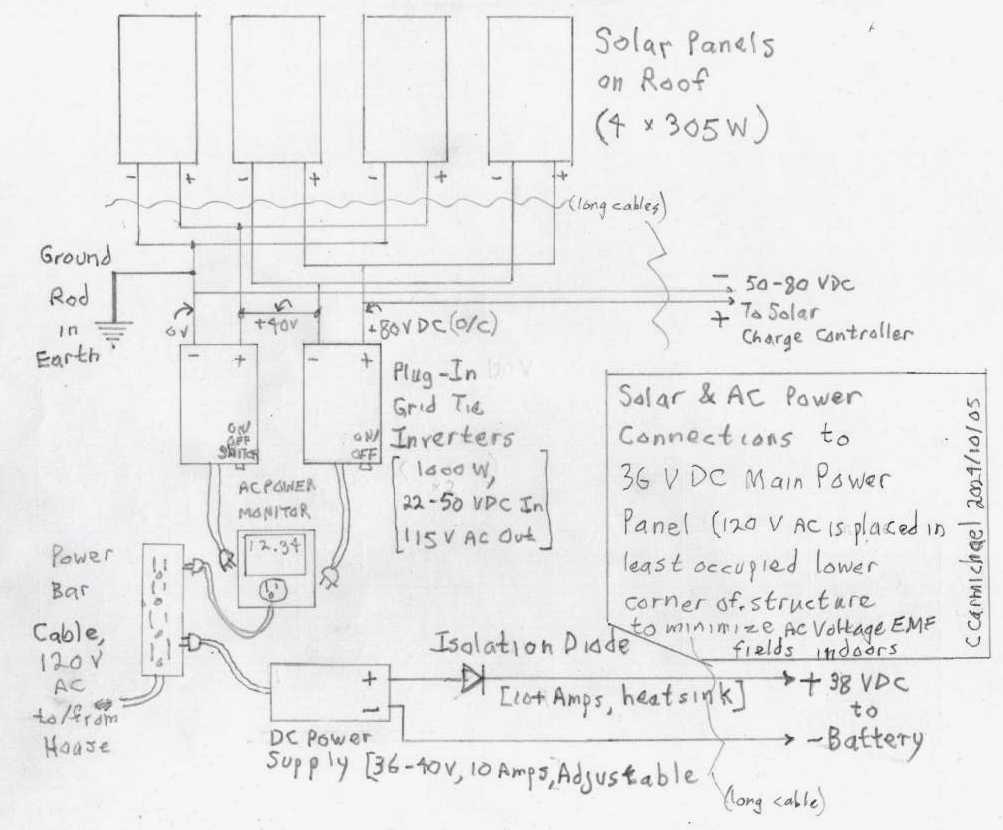 Solar Panels
on Roof
(4 x 305W)
- +
- +
- +
- +
(long cables)
Ground
Rod
in
Earth
0V
+40V
+80V DC (O/C)
- 50-80 VDC
+ To Solar
Charge Controller
- +
- +
ON/
OFF
SWITCH
ON/
OFF
Plug-In
Grid Tie
Inverters
[1000 W,
22-50 VDC In
115 V AC Out]
AC POWER
MONITOR
12.34
Power
Bar
Cable,
120 V
AC
to/from
House
Solar & AC Power
Connections to
36 V DC Main Power
Panel (120 V AC is placed in
least occupied lower
corner of structure
to minimize AC Voltage EMF
fields indoors
CCarmichael 2021/10/05
Isolation Diode
[10+ Amps, heatsink]
+
-
+ 38 VDC
to
- Battery
DC Power
Supply [36-40V, 10 Amps, Adjustable
(long cable)